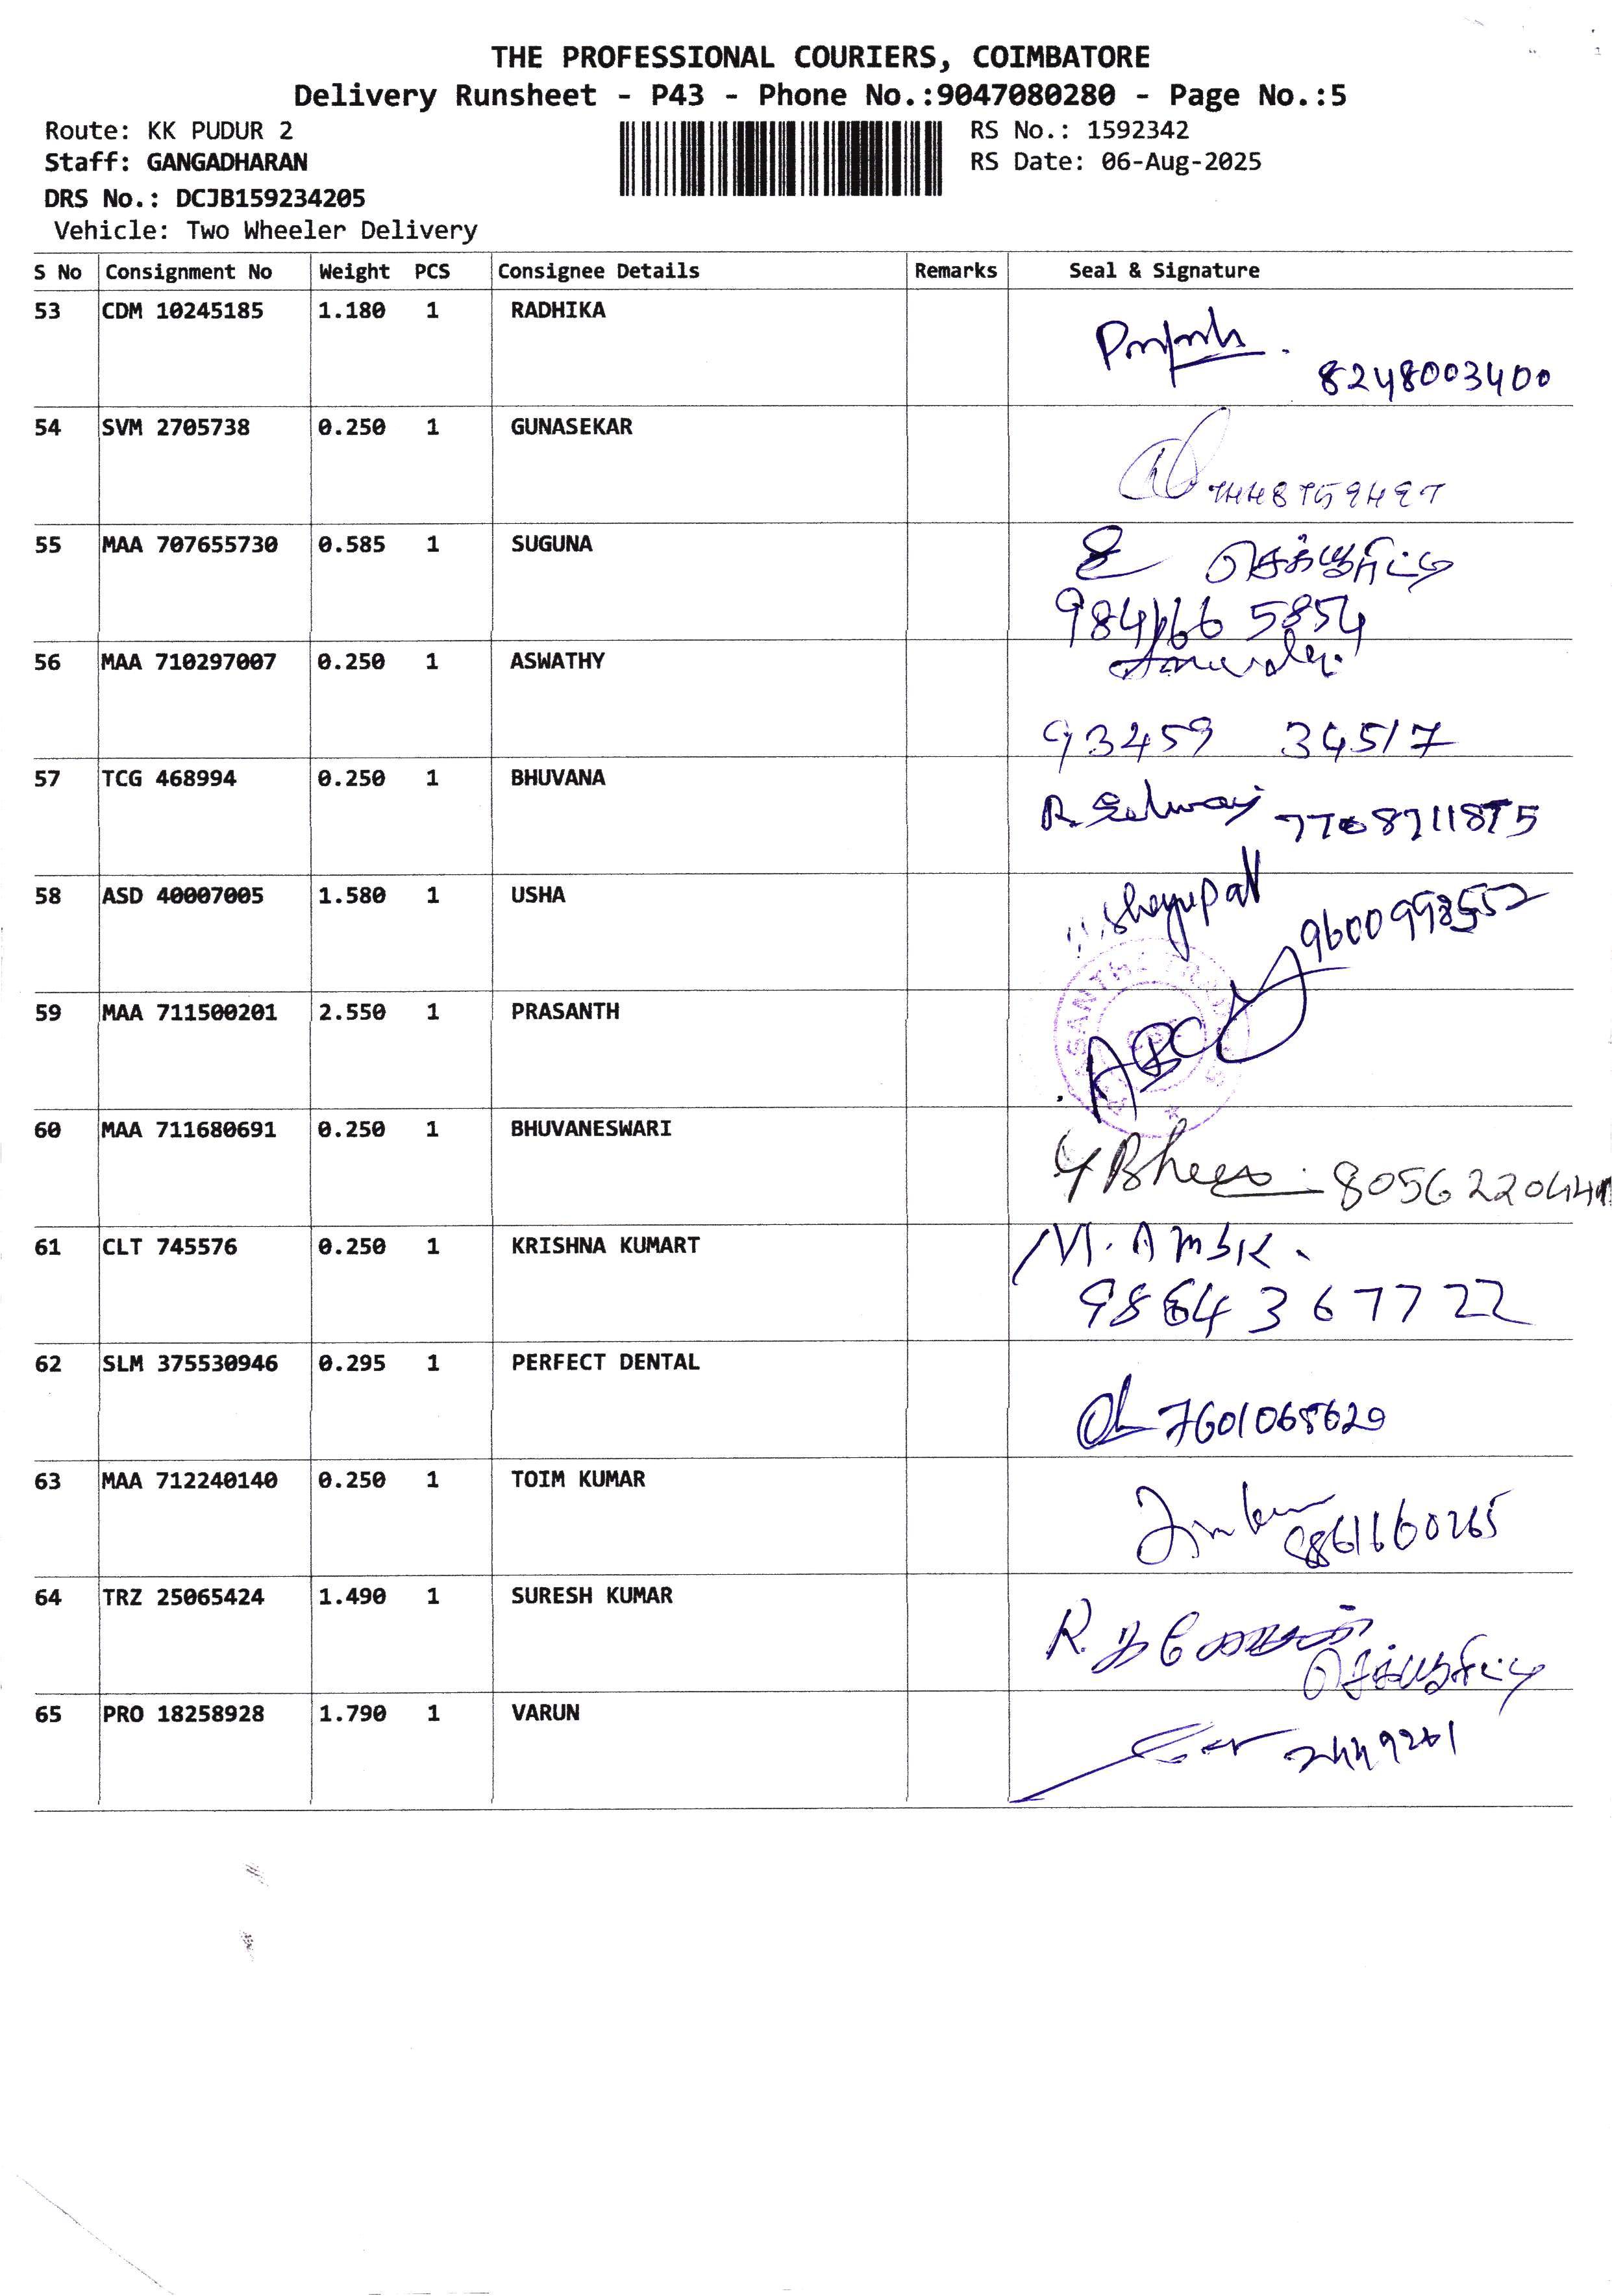 THE PROFESSIONAL COURIERS, COIMBATORE
Delivery Runsheet - P43 - Phone No.:9047080280 - Page No.:5
Route: KK PUDUR 2
RS No.: 1592342
Staff: GANGADHARAN
RS Date: 06-Aug-2025
DRS No.: DCJB159234205
Vehicle: Two Wheeler Delivery
S No Consignment No Weight PCS Consignee Details Remarks Seal & Signature
53 CDM 10245185 1.180 1 RADHIKA
8248003400
54 SVM 2705738 0.250 1 GUNASEKAR
55 MAA 707655730 0.585 1 SUGUNA
செக்யூரிட்டி
5854
56 MAA 710297007 0.250 1 ASWATHY
93459 34517
57 TCG 468994 0.250 1 BHUVANA
R. Selvaraj 7708711875
58 ASD 40007005 1.580 1 USHA
9600998552
59 MAA 711500201 2.550 1 PRASANTH
60 MAA 711680691 0.250 1 BHUVANESWARI
61 CLT 745576 0.250 1 KRISHNA KUMART
M.
9864367722
62 SLM 375530946 0.295 1 PERFECT DENTAL
7601065620
63 MAA 712240140 0.250 1 TOIM KUMAR
64 TRZ 25065424 1.490 1 SURESH KUMAR
R.
செக்யூரிட்டி
65 PRO 18258928 1.790 1 VARUN
2449261